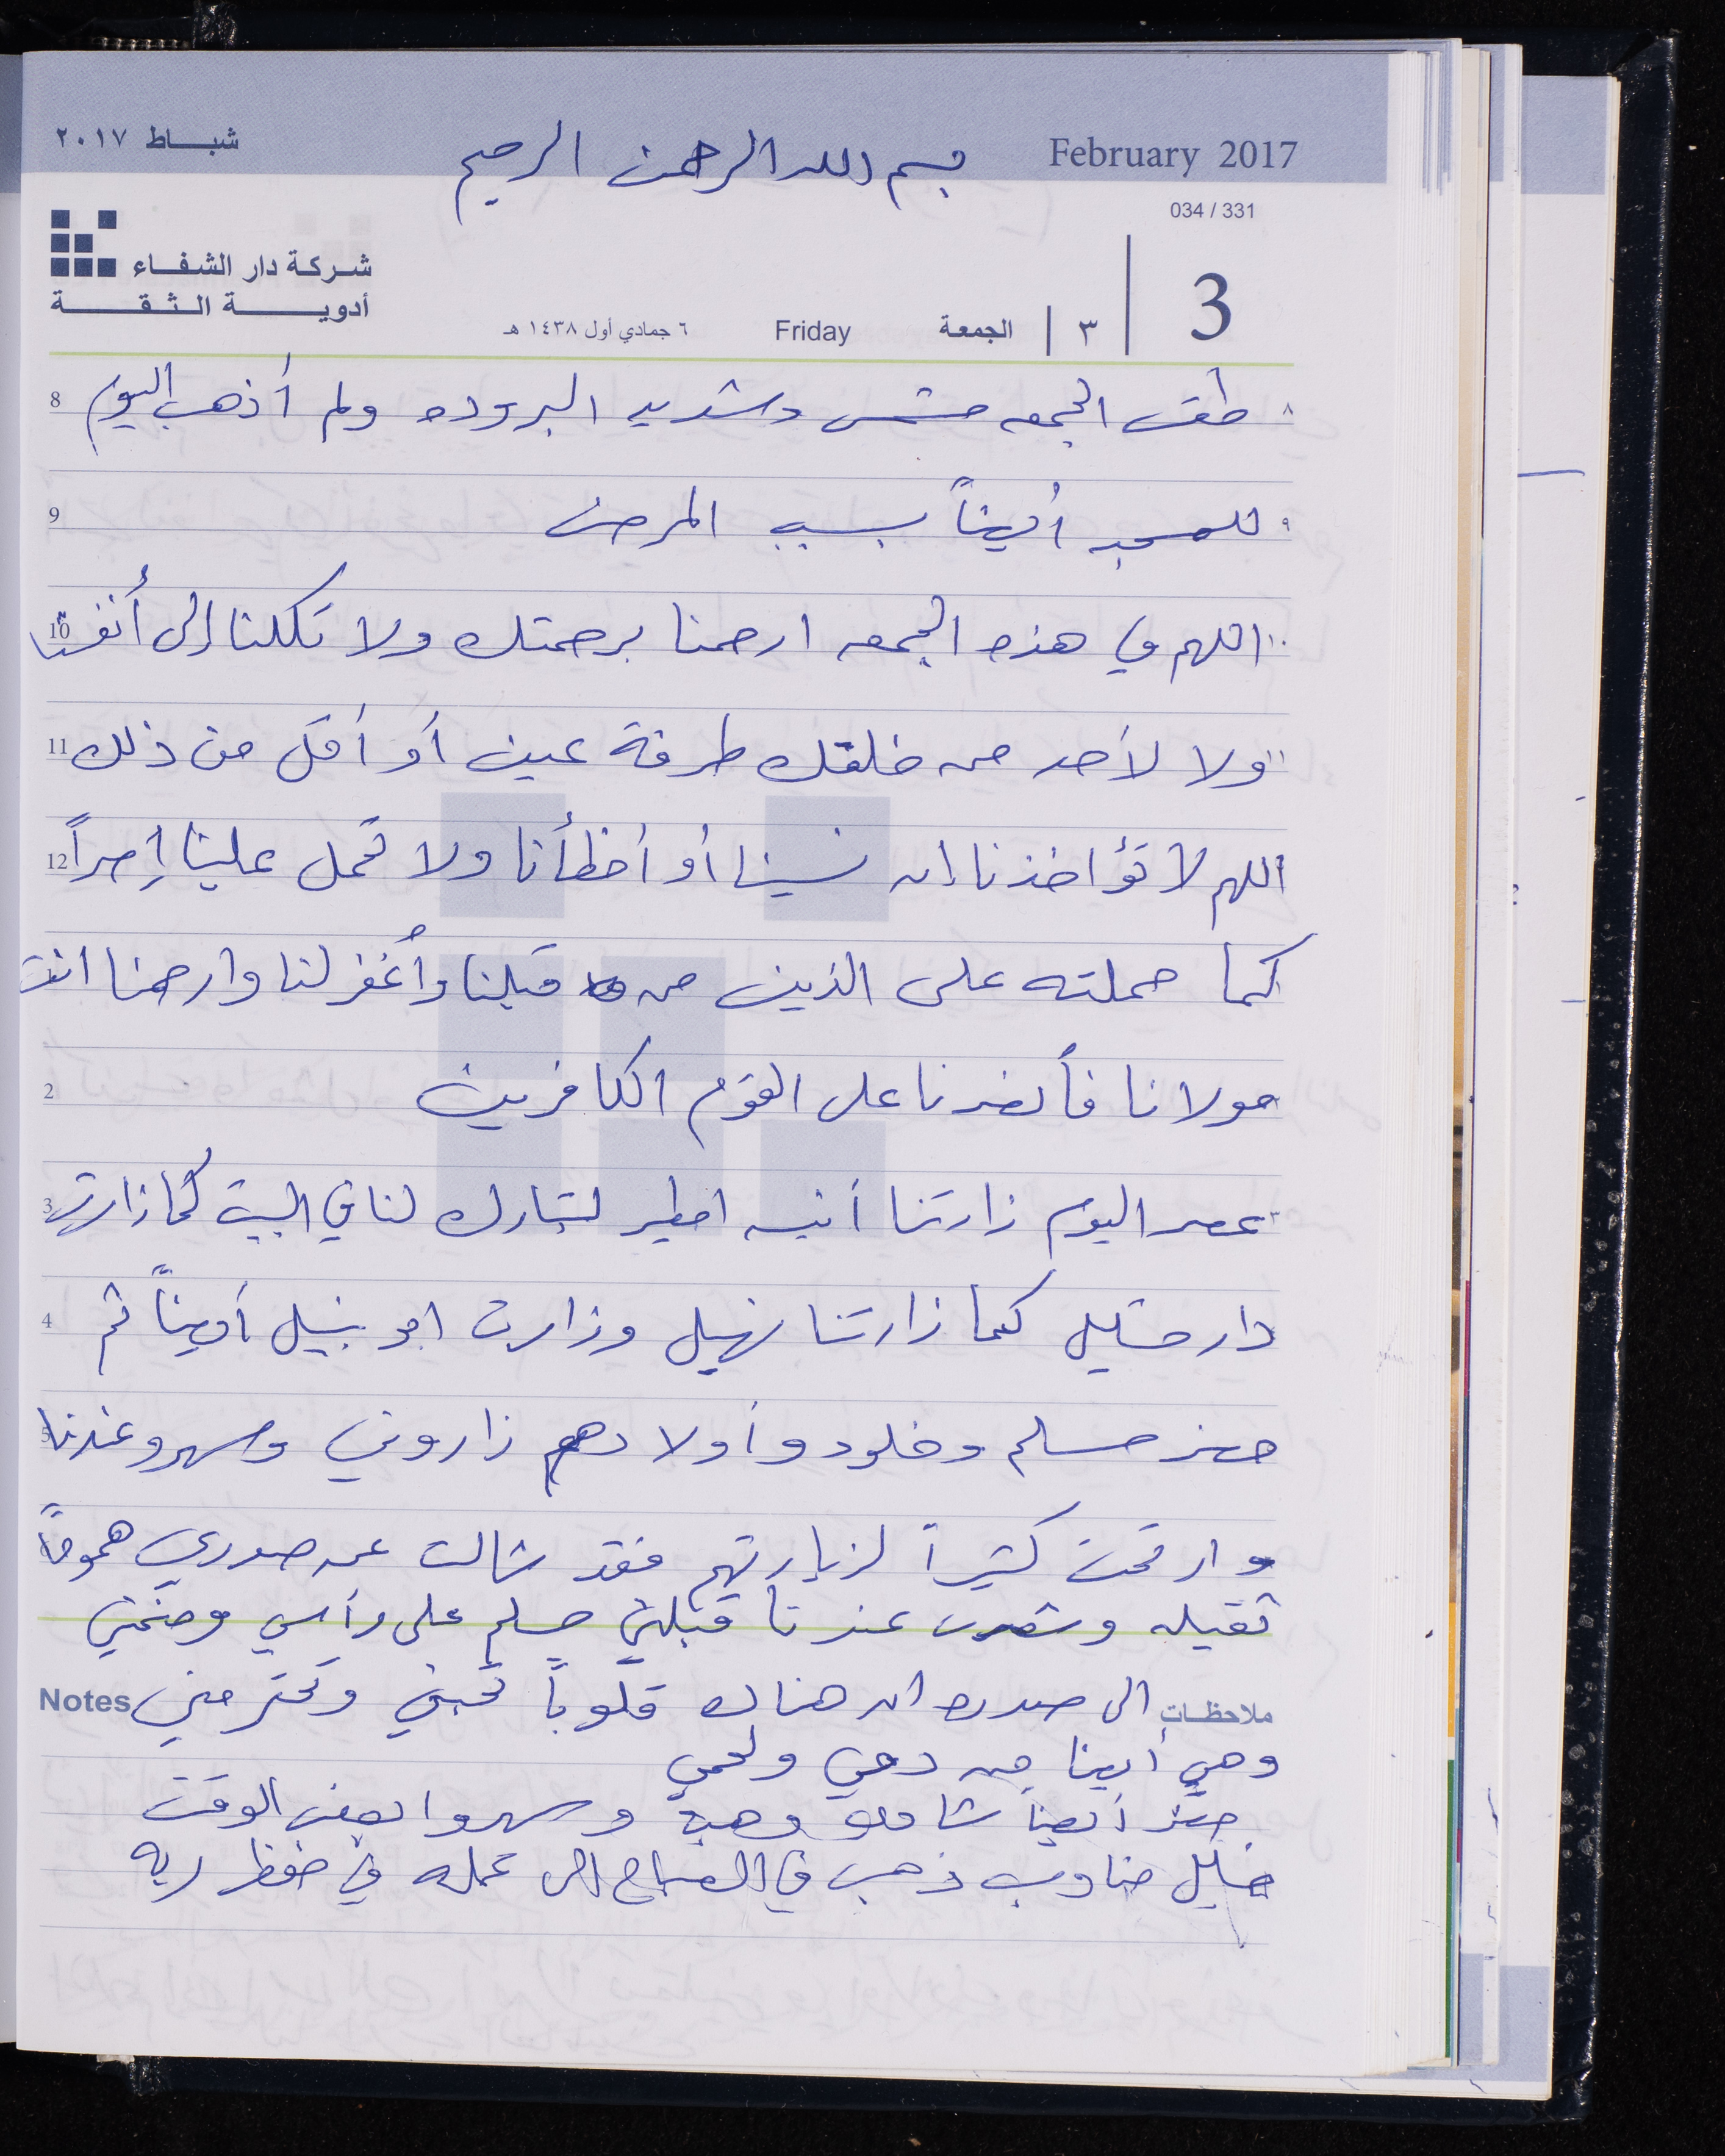 شباط ٢٠١٧
بسم الله الرحمن الرحيم
February 2017
034 / 331
شركة دار الشفاء
أدوية الثقة
3
٣
الجمعة
Friday
٦ جمادي أول ١٤٣٨ هـ
٨ طقس الجمعه مشمس وشديد البروده ولم أذهب اليوم 8
٩ للمسجد أيضاً بسبب المرض 9
١٠ اللهم في هذه الجمعه ارحمنا برحمتك ولا تكلنا إلى أنفسنا 10
١١ ولا لأحد من خلقك طرفة عين أو أقل من ذلك 11
اللهم لا تؤاخذنا إن نسينا أو أخطأنا ولا تحمل علينا إصراً 12
كما حملته على الذين من قبلنا وأغفر لنا وارحمنا انت
مولانا فأنصرنا على القوم الكافرين 2
عصر اليوم زارتنا لتبارك لنا في البيت كما زارت 3
دار كما زارتنا نهيل وزارت ابو نبيل أيضاً ثم 4
حضر مسلم وخلود وأولادهم زاروني وسهرو عندنا 5
وارتحت كثيراً لزيارتهم فقد شالت عن صدري هموماً
ثقيله وشعرت عندنا قبلني مسلم على رأسي وضمني
ملاحظات الى صدره ان هناك قلوباً تحبني وتحترمني Notes
وهي أيضا من دمي ولحمي
حضر أيضاً شامله وهبه وسهروا بعض الوقت
خليل مناوب ذهب في الصباح الى عمله في حفظ ربه